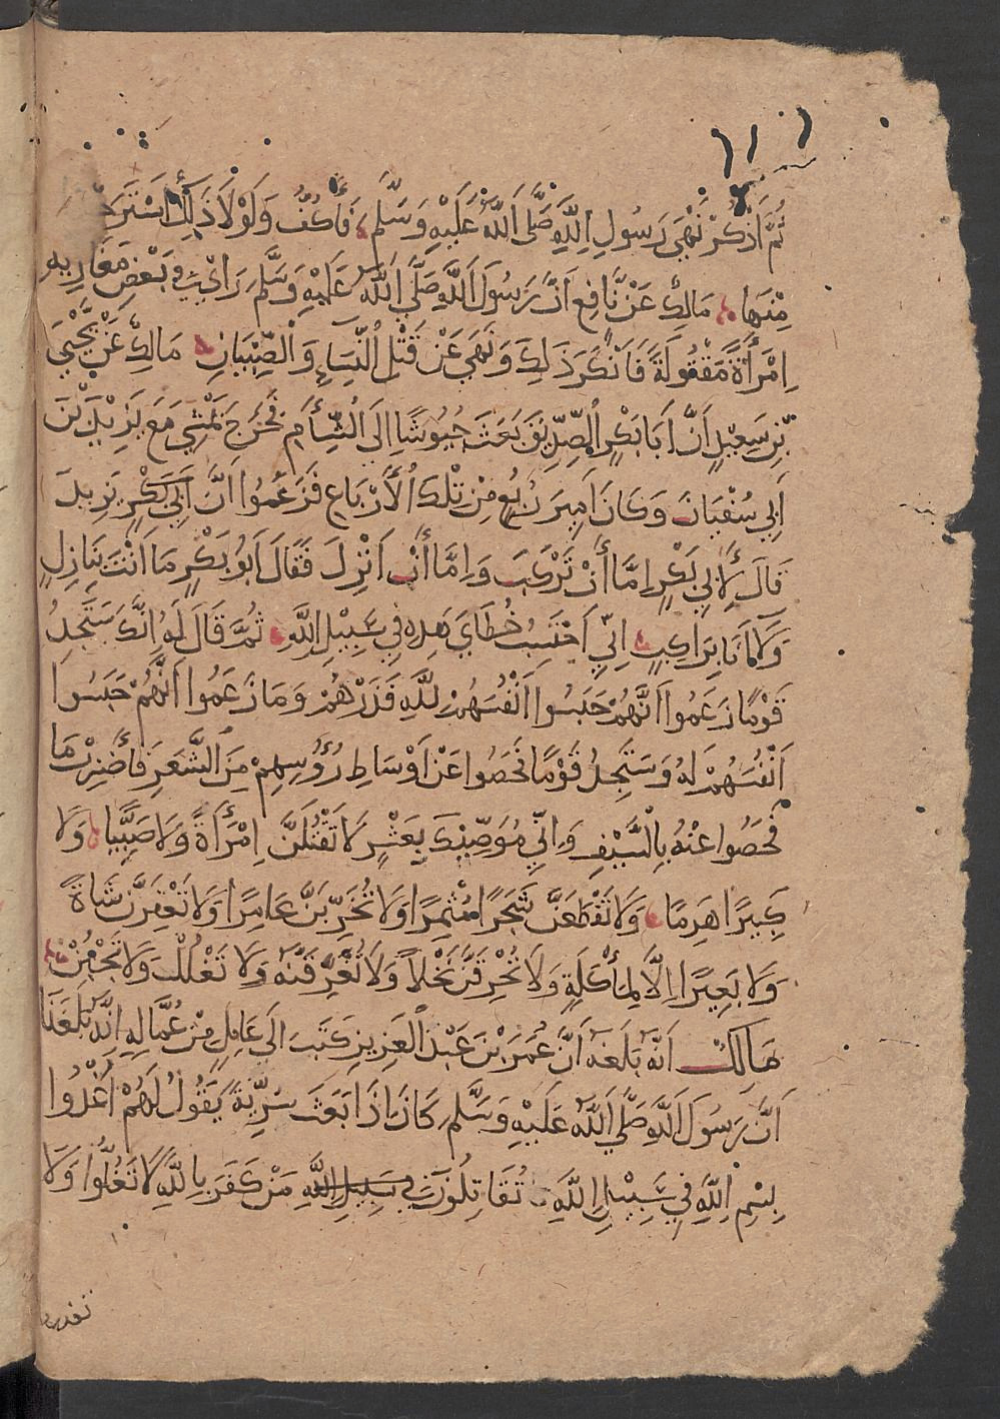 ثُمَّ اَذْكُرْ نَهْيَ رَسُولِ اللَّهِ صَلَّى اللَّهُ عَلَيْهِ وَسَلَّمِ فَأَكُفُّ وَلَوْلَا ذَلِكَ اسْتَرَحْتُ
مِنْهَا مَالِكْ عَنْ نَّافِعٍ اَنَّ رَسُولَ اللَّهِ صَلَّي اللَّهُ عَلَيْهِ وَسَلَّمَ رَائ في بَعْضِ مَغَازِيهِ
اِمْرَأَةً مَّقْتُولَةً فَأَنْكَرَ ذَلِكَ وَنَهَي عَنْ قَتْلِ النِّسَآءِ وَالصِّبْيَانِ مَالِكُ عَنْ يَّحْيَي
بْنِ سَعِيْدٍ اَنَّ اَبَا بَكْرٍ الصِّدِّيْقَ بَعَثَ جُيُوشًا اِلَي الشَّأَمِ فَخَرَجَ يَمْشِي مَعَ يَزِيْدَ بْنَ
اَبِي سُفْيَانَ وَكَانَ اَمِيرَ رُبُعٍ مِنْ تِلْكَ الْأَرْبَاعِ فَزَعَمُوا اَنَّ اَبِي بَكْرٍ يَزِيدَ
قَالَ لِأَبِي بَكْرٍ اِمَّا أَنْ تَرْكَبَ وَاِمَّا أَنْ اَنْزِلَ فَقَالَ اَبُو بَكْرٍ مَا اَنْتَ بِنَازِلٍ
وَلَا اَنَا بِرَاكِبٍ اِنِّي اَحْتَسِبُ خُطَايَ هَذِهِ فِي سَبِيْلِ اللَّهِ ثُمَّ قَالَ لَهُ اِنَّكَ سَتَجِدُ
قَوْمًا زَعَمُوا اَنَّهُمْ حَبَسُوا اَنْفُسَهُمْ لِلَّهِ فَذَرْهُمْ وَمَا زَعَمُوا اَنَّهُمْ حَبَسُوا
اَنْفُسَهُمْ لَهُ وَسَتَجِدُ قَوْمًا فَحَصُوا عَنْ اَوْسَاطِ رُؤُسِهِمْ مِنَ الشَّعَرِ فَأَضْرِبْ مَا
فَحَصُوا عَنْهُ بِالسَّيْفِ وَاِنِّي مُوَصِّيْكَ بِعَشْرٍ لَا تَقْتُلَنَّ اِمْرَأَةً وَّلَا صَبِيًّا وَلَا
كَبِيْرًا هَرِمًا وَلَا تَقْطَعَنَّ شَجَرًا مُثْمِرًا وَلَا تُخَرِّبَنَّ عَامِرًا وَلَا تَعْقِرَنَّ شَاةً
وَلَا بَعِيْرًا اِلَّا لِمَأْكَلَةٍ وَلَا تُحْرِقَنَّ نَخْلًا وَلَا تُغَرِّقَنَّهُ وَلَا تَغْلُلْ وَلَا تَجْبُنْ
مَالك اَنَّهُ بَلَغَهُ اَنَّ عُمَرَ بْنَ عَبْدِ الْعَزِيزِ كَتَبَ اِلَي عَامِلٍ مِنْ عُمَّالِهِ اِنَّهُ بَلَغَنَا
اَنَّ رَسُولَ اللَّهِ صَلَّي اللَّهُ عَلَيْهِ وَسَلَّمِ كَانَ اِذَا بَعَثَ سَرِيَّةً يَقُولُ لَهُمْ اُغْزُوا
بِسْمِ اللَّهِ فِي سَبِيْلِ اللَّهِ تُقَاتِلُونَ فِي سَبِيلِ اللَّهِ مَنْ كَفَرَ بِاللَّهِ لَا تَغُلُّوا وَلَا
تغدروا